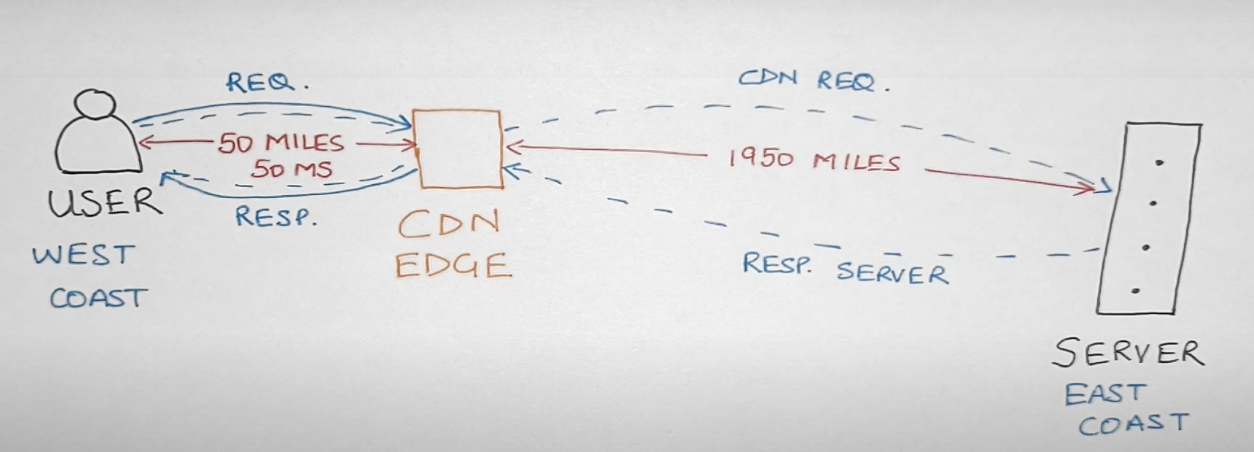 REQ.
50 MILES
50 MS
RESP.
USER
WEST
COAST
CDN
EDGE
CDN REQ.
1950 MILES
RESP. SERVER
SERVER
EAST
COAST